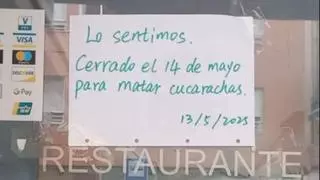 Lo sentimos.
Cerrado el 14 de mayo
para matar cucarachas.
13/5/2025
RESTAURANTE
VISA
VISA
DISCOVER
G Pay